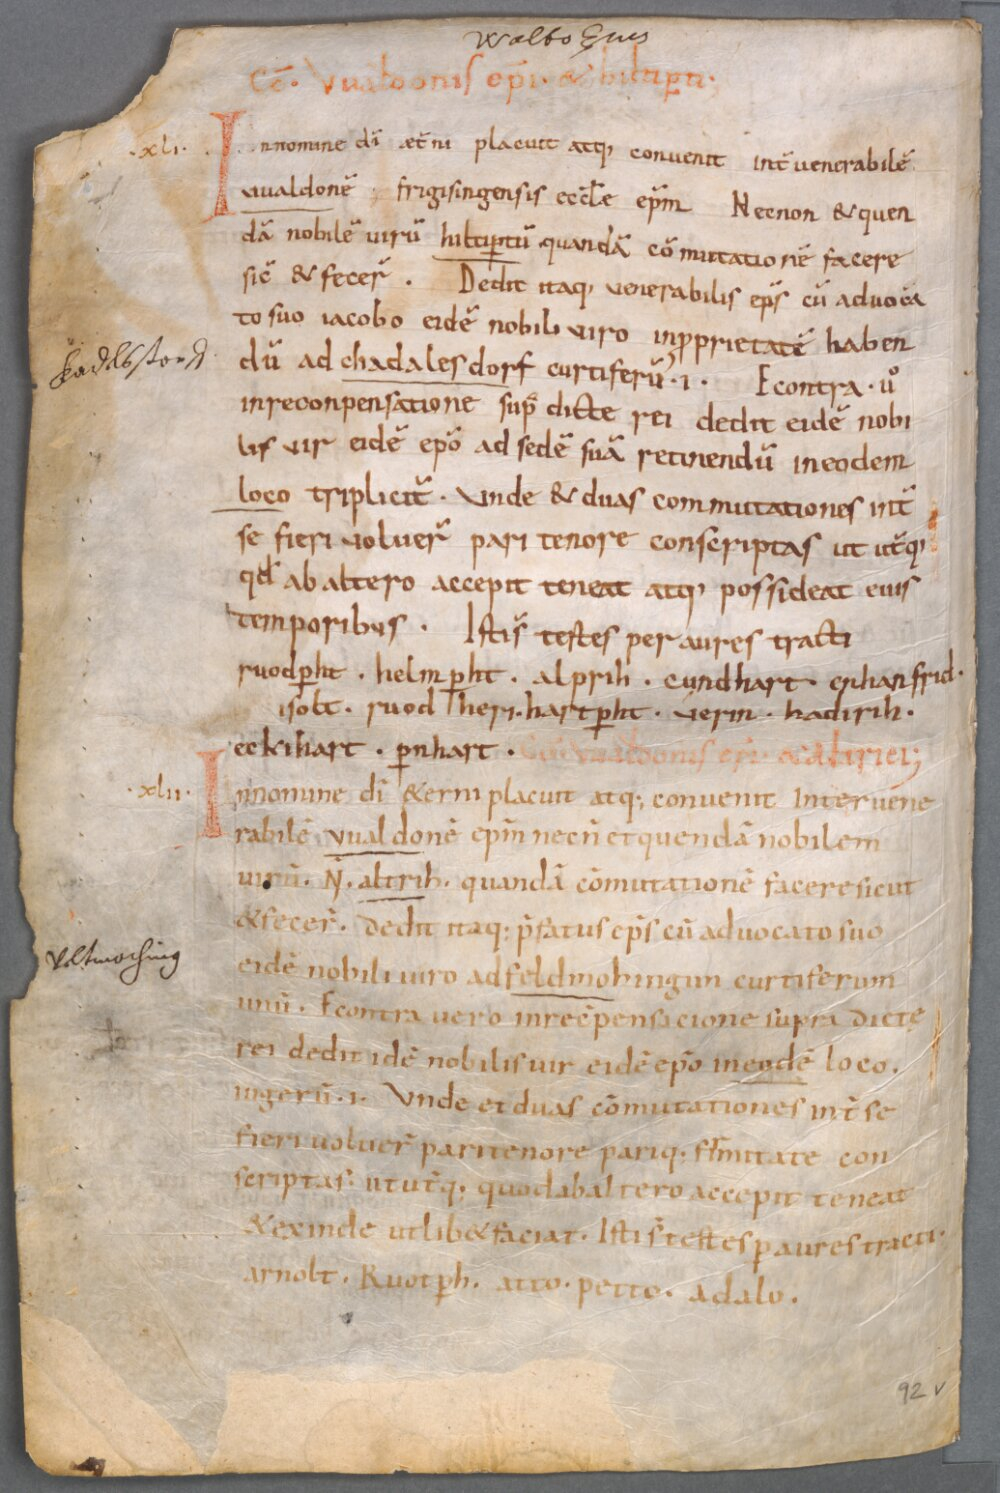 Walbo Epus
Cō. Vualdonis ep̄i. & hiltip̄ti;
.xli. In nomine dī æt̄ni placuit atq; convenit int̄ venerabilē
vualdonē frigisingensis eccłe ep̄m Necnon & quen
dā nobilē virū hiltip̄tū quandā cōmutationē facere
sic̄ & fecer̄. Dedit itaq; venerabilis ep̄s cū advoca
to suo iacobo eidē nobili viro inp̄prietatē haben
Kadelstorf.
dū ad chadalesdorf curtiferū .i. Econtra . ůo
inreconpensatione sup̄ dicte rei dedit eidē nobi
lis vir eidē ep̄o ad sedē suā retinendū in eodem
loco triplicit̄. Vnde & duas commutationes int̄
se fieri voluer̄ pari tenore conscriptas ut ut̄q;
qđ ab altero accepit teneat atq; possideat euis
temporibus. Istis̄ testes per aures tracti
ruodp̄ht. helmp̄ht. alprih. cundhart. enhanfrid.
isolt. ruodheri. hartp̄ht. verin. hadirih.
eckihart. p̄nhart. Cōm̄ Vualdonis ep̄i. & altrici;
.xlii. In nomine dī &erni placuit atq; convenit Inter vene
rabilē vualdonē ep̄m necn̄ et quendā nobilem
virū. N̄. altrih. quandā cōmutationē facere sicut
& fecer̄. Dedit itaq; p̄fatus ep̄s cū advocato suo
Veltmoching
eidē nobili viro ad feldmohingun curtiferum
unū. Econtra vero in rec̄pensacione supra dicte
rei dedit idē nobilis vir eidē ep̄o in eodē loco.
iugerū .i. Vnde et duas cōmutationes int̄ se
fieri voluer̄ pari tenore pariq; firmitate con
scriptas: ut ut̄q; quod ab altero accepit teneat
& exinde ut lib& faciat. Istis̄ testes p̄ aures tracti.
arnolt. Ruotp̄h. atto. petto. adalo.
92 v